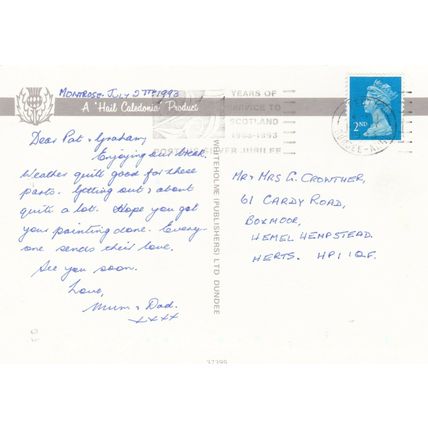 MONTROSE. JULY 2TTH 1993
A "Hail Caledonia" Product
YEARS OF
SERVICE TO
SCOTLAND
1968-1993
SILVER JUBILEE
2ND
Dear Pat & Graham,
Enjoying our break.
Weather quite good for these
parts. Getting out & about
quite a lot. Hope you got
your painting done. Every-
one sends their love.
See you soon.
Love,
Mum & Dad.
xxxx
WHITEHOLME (PUBLISHERS) LTD DUNDEE
MR & MRS G. CROWTHER,
61 CARDY ROAD,
BOXMOOR,
HEMEL HEMPSTEAD.
HERTS. HP1 1QF.
37399